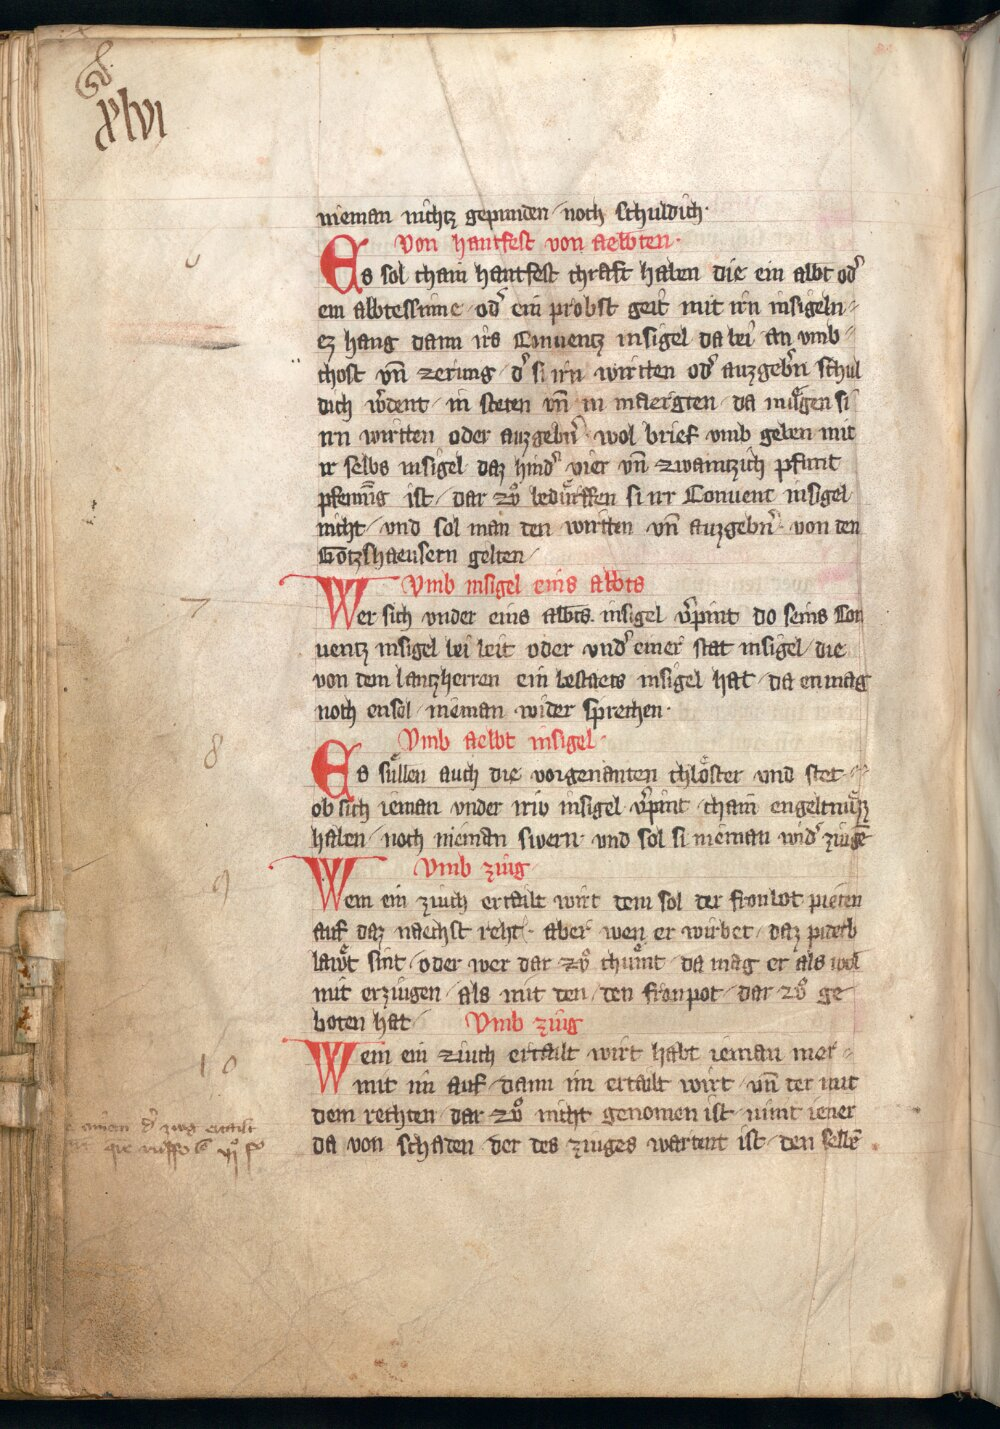 xlvi
nieman nichtz gepunden / noch schuldich·
Von hantfest von aebten·
Es sol chain hantfest chraft haben die ein abt od͛
ein abtessinne / od͛ ein probst geit mit irn insigeln /
ez hang dann irs Conuentz insigel da bei an vmb
chost vn̄ zerung / d͛ si irn wirtten od͛ auzgebn͛ schul
dich w͛dent / in steten vn̄ in maergten / da mügen si
irn wirtten oder auzgebn͛ wol brief vmb geben mit
ir selbs insigel daz hind͛ vier vn̄ zwaintzich pfunt
pfenning ist / dar zů bedürffen si irr Conuent insigel
nicht / vnd sol man den wirtten vn̄ auzgebn͛ von den
Gotzshaeusern gelten /
Vmb insigel eins abts
Wer sich vnder eins abts insigel v͛pint do seins Con
uentz insigel bei leit oder vnd͛ einer stat insigel / die
von dem lantzherren ein bestaets insigel hat / da enmag
noch ensol / nieman wider sprechen·
Vmb aebt insigel·
Es süllen auch die vorgenanten chlöster vnd stet
ob sich ieman vnder iriv insigel v͛pint chain engeltnüzz
haben / noch nieman swern· vnd sol si nieman wid͛ zingē
Vmb züg
Wem ein zivch ertailt wirt dem sol der fronbot pieten
auf daz naechst reht· aber wen er wirbet / daz piderb
laut sint / oder wer dar zů chümt / da mag er als wol
mit erziugen / als mit den / den fronpot / dar zů ge
boten hat / Vmb züg
Wem ein ziuch ertailt wirt habt ieman mer /
mit im auf / dann im ertailt wirt / vn̄ der mit
dem rechten / dar zů nicht genomen ist / nimt iener
da von schaden der des ziuges wartent ist / den selbē
7
8
9
10